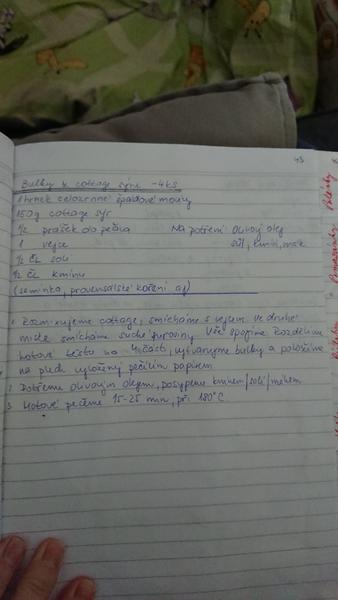 43
Bulky z cottage sýru - 4ks
1 hrnek celozrnné špaldové mouky
150g cottage sýr
1/2 prášek do pečiva Na potření olivový olej
1 vejce sůl, kmín, mák
1/2 čl soli
1/2 čl kmínu
(semínka, provensálské koření aj)
1. Rozmixujeme cottage, smícháme s vejcem. Ve druhé
misce smícháme suché suroviny. Vše spojíme. Rozdělíme
hotové těsto na 4 části, vytvarujeme bulky a položíme
na plech vyložený pečícím papírem
2. Potřeme olivovým olejem, posypeme kmínem/solí/mákem
3. Hotové pečeme 15-25 min, při 180°C